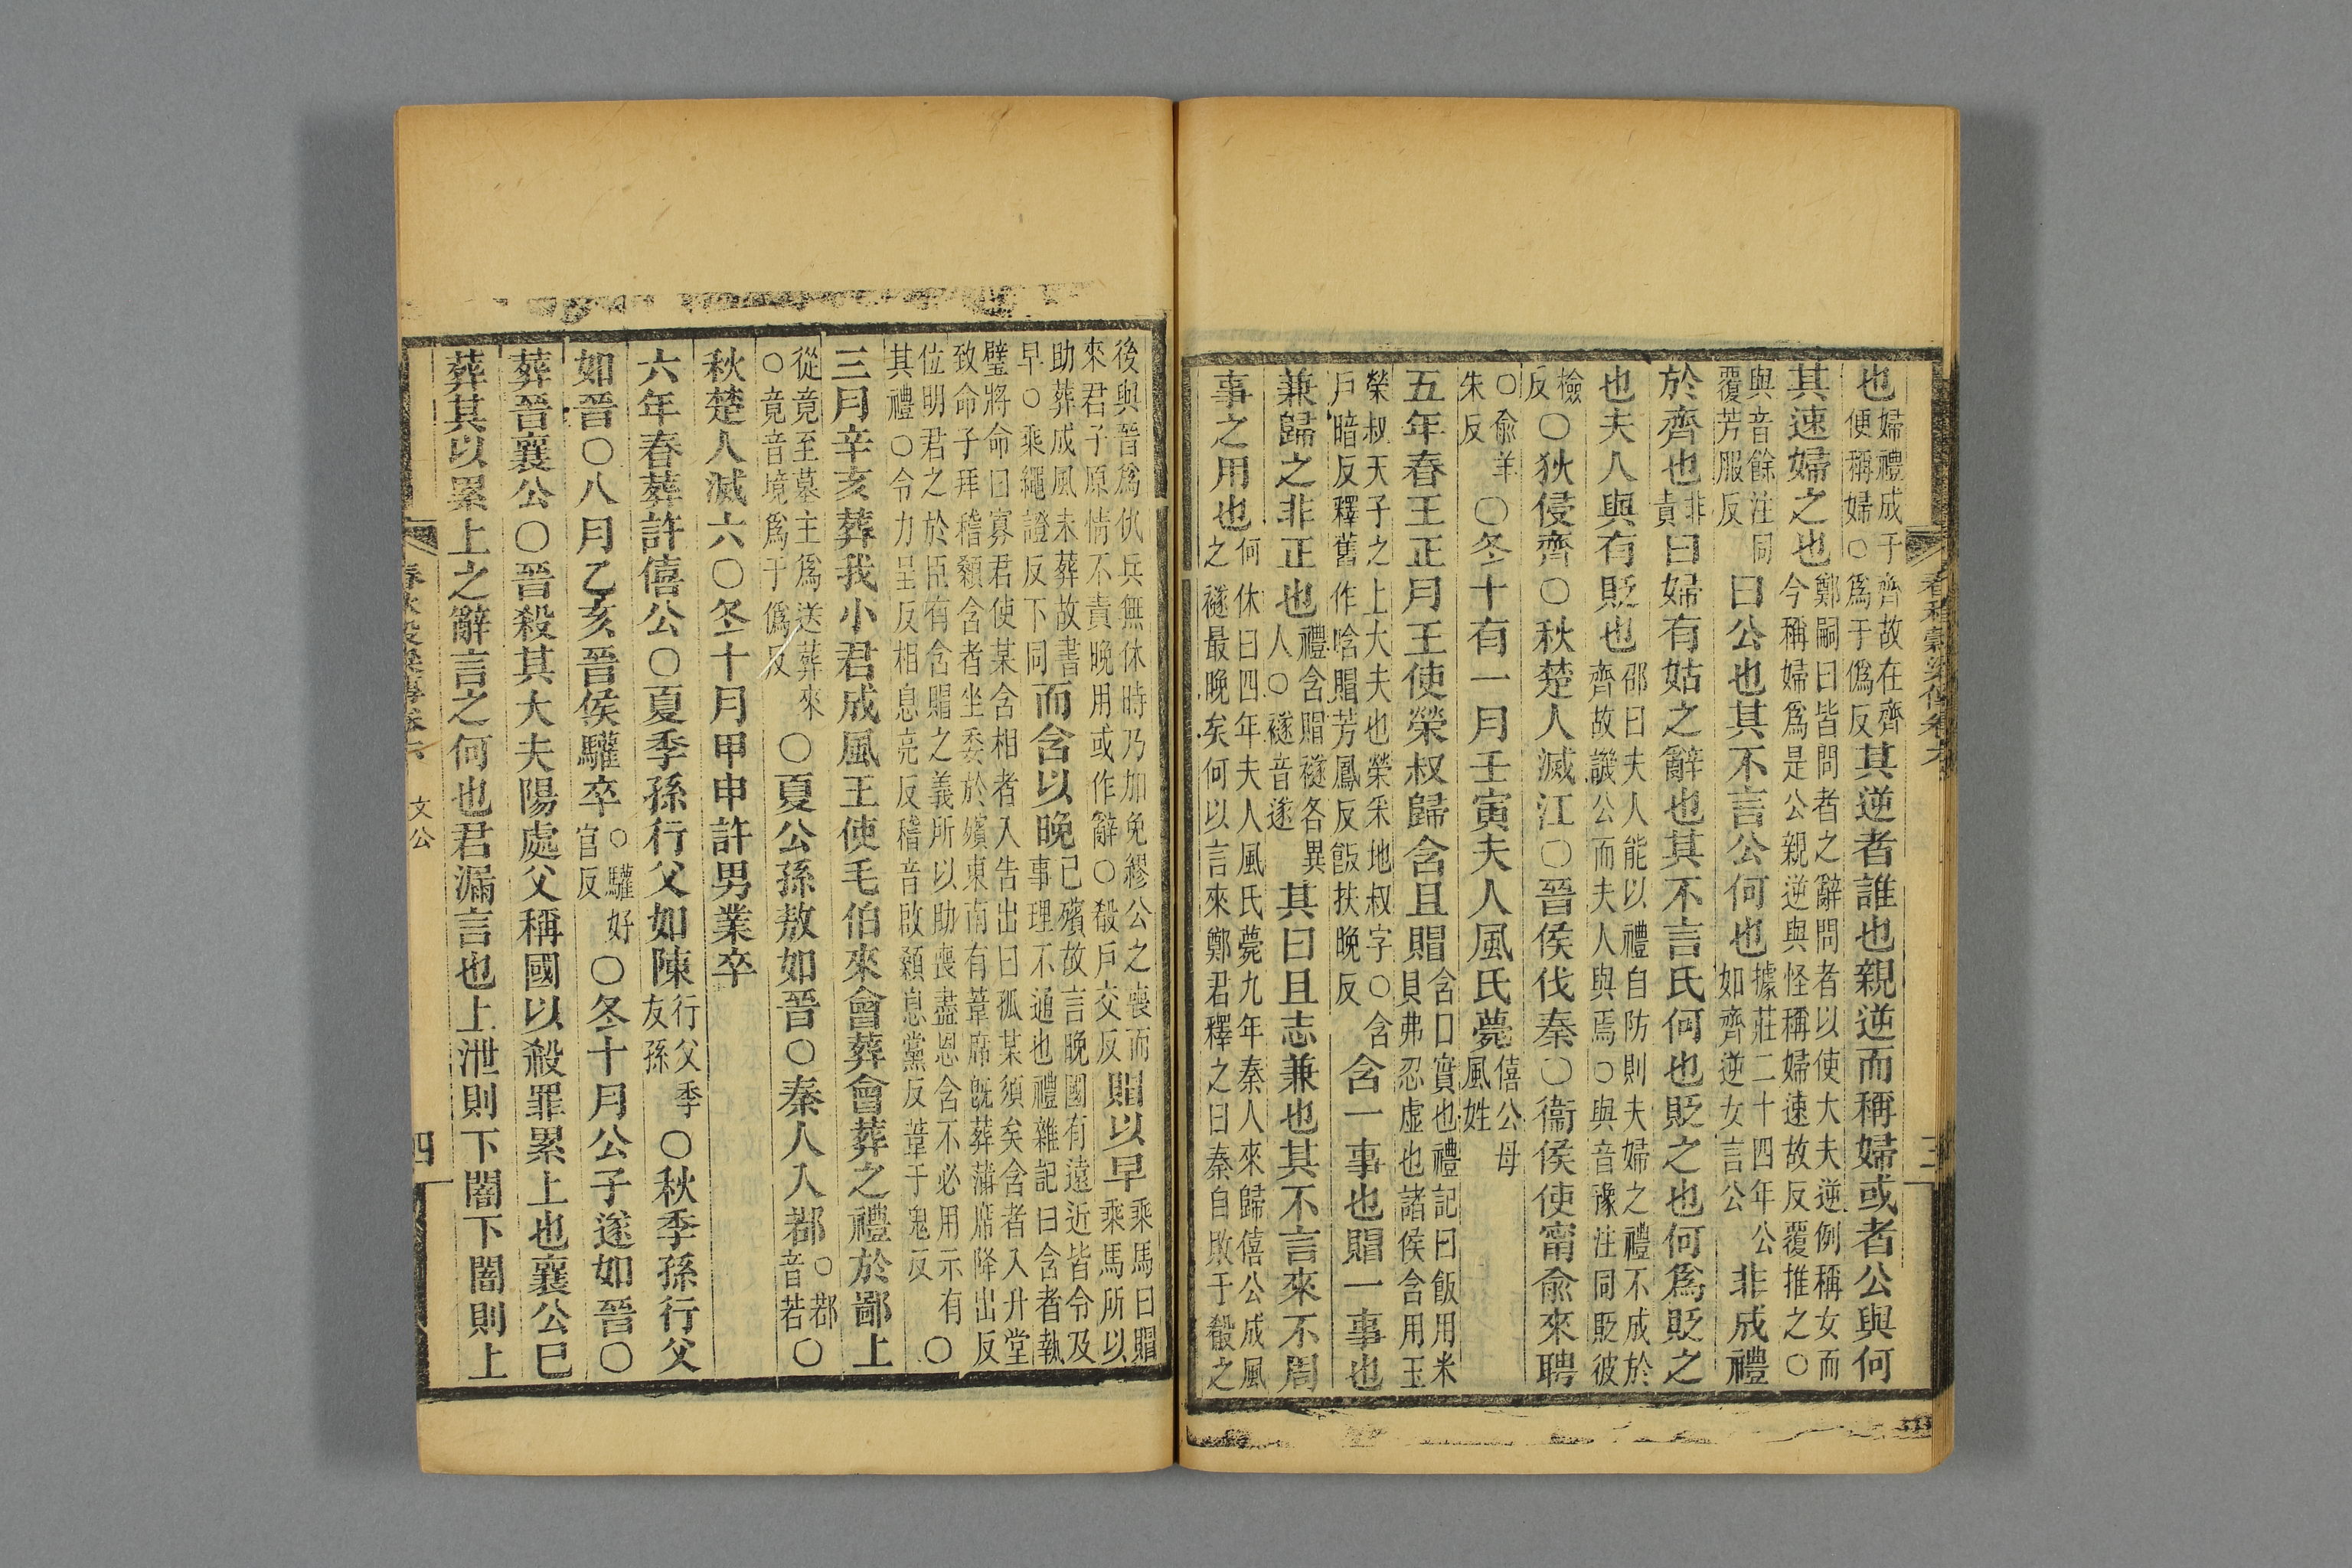 也婦禮成于齊故在齊便稱婦○爲于僞反其逆者誰也親逆而稱婦或者公與何
其速婦之也鄭嗣曰皆問者之辭問者以使大夫逆例稱女而今稱婦爲是公親逆與怪稱婦速故反覆推之○
與音餘注同覆芳服反曰公也其不言公何也據莊二十四年公如齊逆女言公非成禮
於齊也非責曰婦有姑之辭也其不言氏何也貶之也何爲貶之
也夫人與有貶也邵曰夫人能以禮自防則夫婦之禮不成於齊故譏公而夫人與焉○與音豫注同貶彼
檢反○狄侵齊○秋楚人滅江○晉侯伐秦○衞侯使甯俞來聘
○俞羊朱反○冬十有一月壬寅夫人風氏薨僖公母風姓
五年春王正月王使榮叔歸含且賵含口實也禮記曰飯用米貝弗忍虛也諸侯含用玉
榮叔天子之上大夫也榮采地叔字○含戶暗反釋舊作唅賵芳鳳反飯扶晚反含一事也賵一事也
兼歸之非正也禮含賵襚各異人○襚音遂其曰且志兼也其不言來不周
事之用也何休曰四年夫人風氏薨九年秦人來歸僖公成風之襚最晚矣何以言來鄭君釋之曰秦自敗于殽之
春秋穀梁傳卷六
三
後與晉爲仇兵無休時乃加免繆公之喪而來君子原情不責晚用或作辭○殽戶交反賵以早乘馬曰賵乘馬所以
助葬成風未葬故書早○乘繩證反下同而含以晚已殯故言晚國有遠近皆令及事理不通也禮雜記曰含者執
璧將命曰寡君使某含相者入告出曰孤某須矣含者入升堂致命子拜稽顙含者坐委於殯東南有葦席旣葬蒲席降出反
位明君之於臣有含賵之義所以助喪盡恩含不必用示有其禮○令力呈反相息亮反稽音啟顙息黨反葦于鬼反○
三月辛亥葬我小君成風王使毛伯來會葬會葬之禮於鄙上
從竟至墓主爲送葬來○竟音境爲于僞反○夏公孫敖如晉○秦人入鄀○鄀音若○
秋楚人滅六○冬十月甲申許男業卒
六年春葬許僖公○夏季孫行父如陳行父季友孫○秋季孫行父
如晉○八月乙亥晉侯驩卒○驩好官反○冬十月公子遂如晉○
葬晉襄公○晉殺其大夫陽處父稱國以殺罪累上也襄公已
葬其以累上之辭言之何也君漏言也上泄則下闇下闇則上
春秋穀梁傳卷六
文公
四